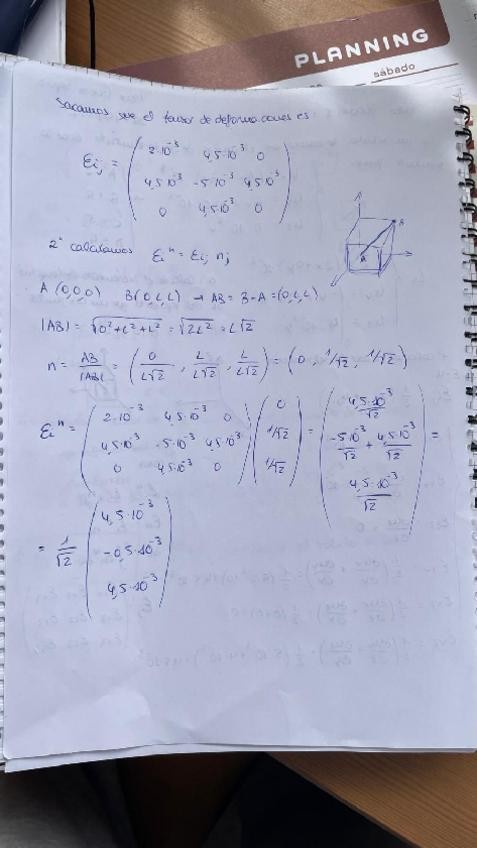 PLANNING
sábado
Sacamos que el tensor de deformaciones es:
Eij = ( 2·10⁻³ 4,5·10⁻³ 0
4,5·10⁻³ -5·10⁻³ 4,5·10⁻³
0 4,5·10⁻³ 0 )
2º calculamos Eiⁿ = Eij nj
A (0,0,0) B(0,L,L) → AB = B-A = (0,L,L)
|AB| = √0²+L²+L² = √2L² = L√2
n = AB/|AB| = (0/L√2, L/L√2, L/L√2) = (0, 1/√2, 1/√2)
Eiⁿ = ( 2·10⁻³ 4,5·10⁻³ 0 ) ( 0 ) = ( 4,5·10⁻³/√2 )
4,5·10⁻³ -5·10⁻³ 4,5·10⁻³ 1/√2 -5·10⁻³/√2 + 4,5·10⁻³/√2 =
0 4,5·10⁻³ 0 1/√2 4,5·10⁻³/√2
= 1/√2 ( 4,5·10⁻³
-0,5·10⁻³
4,5·10⁻³ )